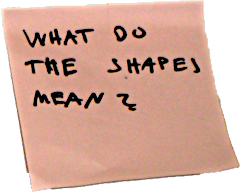 WHAT DO
THE SHAPES
MEAN?